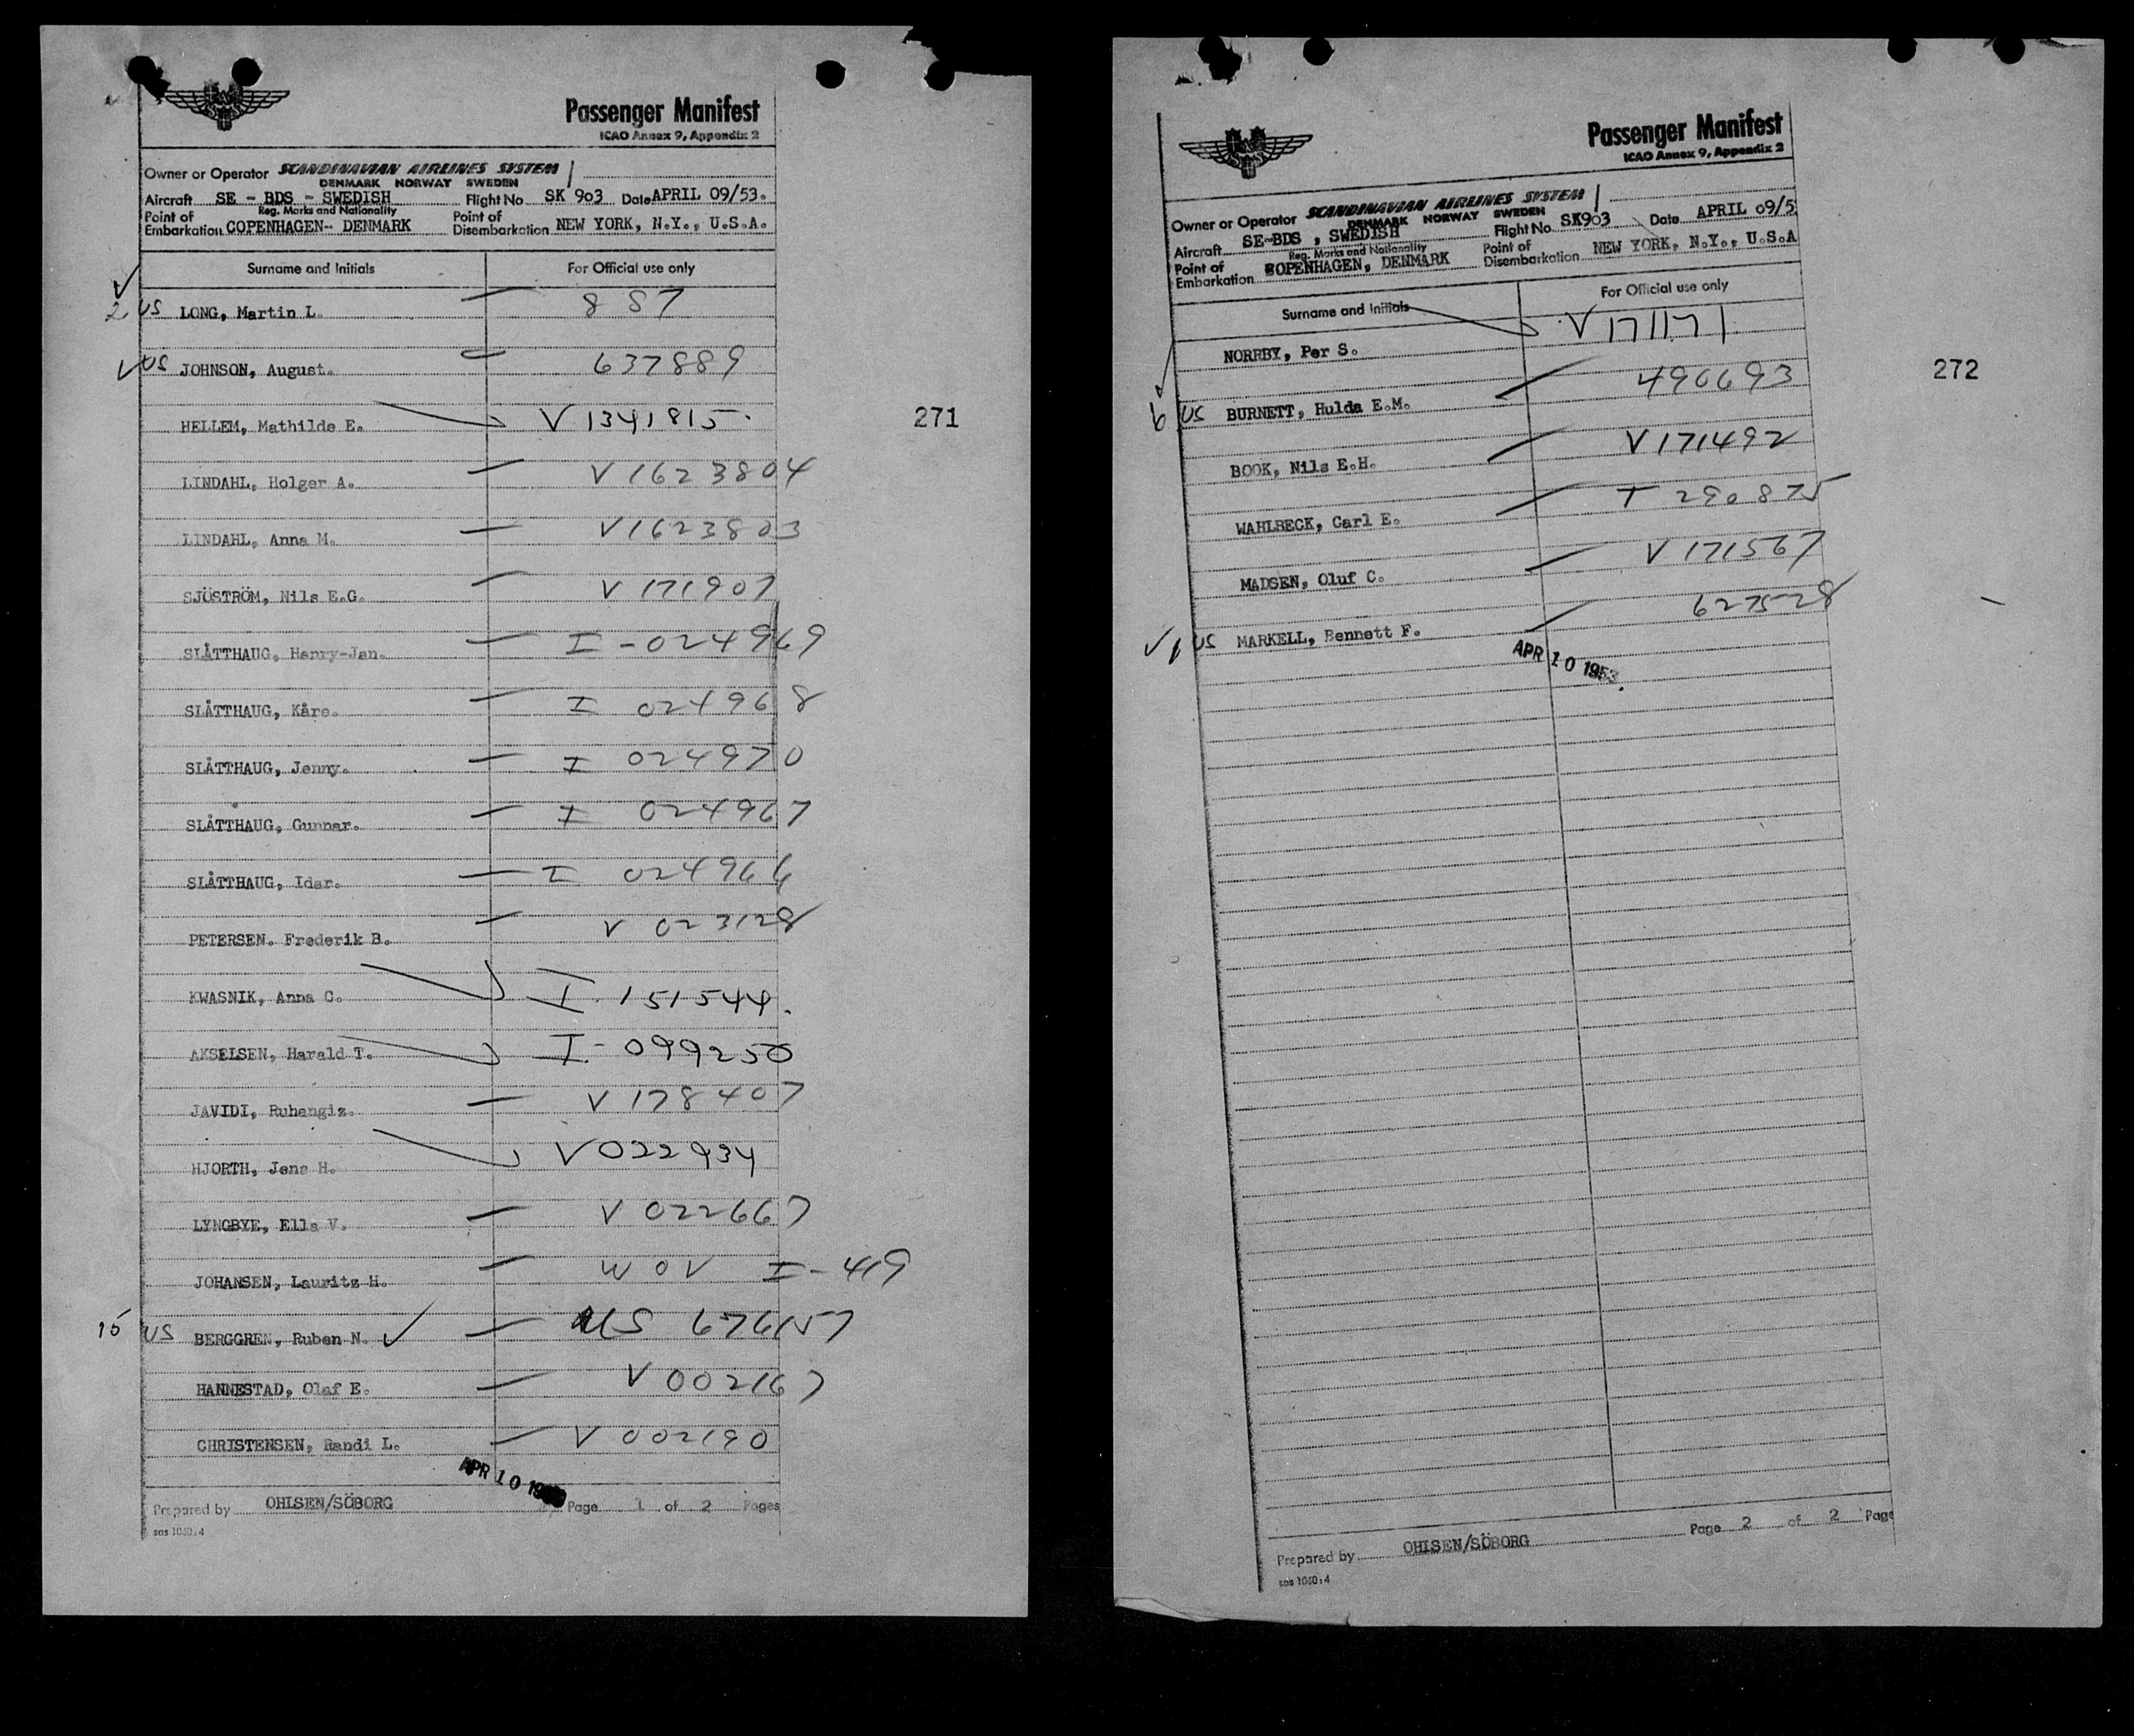 Passenger Manifest
ICAO Annex 9, Appendix 2
Owner or Operator SCANDINAVIAN AIRLINES SYSTEM
DENMARK NORWAY SWEDEN
Aircraft SE - BDS - SWEDISH Flight No SK 903 Date APRIL 09/53.
Reg. Marks and Nationality
Point of Embarkation COPENHAGEN- DENMARK Point of Disembarkation NEW YORK, N.Y., U.S.A.
Surname and Initials For Official use only
2 US LONG, Martin L. 887
US JOHNSON, August. 637889
HELLEM, Mathilde E. V 1341815
271
LINDAHL, Holger A. V 1623804
LINDAHL, Anna M. V1623803
SJÖSTRÖM, Nils E.G. V 171907
SLÅTTHAUG, Henry-Jan. I-024969
SLÅTTHAUG, Kåre. I 024968
SLÅTTHAUG, Jenny. I 024970
SLÅTTHAUG, Gunnar. I 024967
SLÅTTHAUG, Idar. I 024966
PETERSEN. Frederik B. V 023128
KWASNIK, Anna C. I 151544.
AKSELSEN, Harald T. I-099250
JAVIDI, Ruhangiz. V 178407
HJORTH, Jens H. V022934
LYNGBYE, Ella V. V 022667
JOHANSEN, Lauritz H. WOV I-419
15 US BERGGREN, Ruben N. US 676157
HANNESTAD, Olaf E. V 002167
CHRISTENSEN, Randi L. V 002190
APR 10
Prepared by OHLSEN/SÖBORG Page 1 of 2 Pages
sas 1040:4
Passenger Manifest
ICAO Annex 9, Appendix 2
Owner or Operator SCANDINAVIAN AIRLINES SYSTEM
DENMARK NORWAY SWEDEN
Aircraft SE-BDS , SWEDISH Flight No SK903 Date APRIL 09/5
Reg. Marks and Nationality
Point of Embarkation COPENHAGEN, DENMARK Point of Disembarkation NEW YORK, N.Y., U.S.A
Surname and Initials For Official use only
NORRBY, Per S. V 171171
272
6 US BURNETT, Hulda E.M. 490693
BOOK, Nils E.H. V171492
WAHLBECK, Carl E. I 290875
MADSEN, Oluf C. V 171567
1 US MARKELL, Bennett F. 627528
APR 10 1953
Prepared by OHLSEN/SÖBORG Page 2 of 2 Page
sas 1040:4